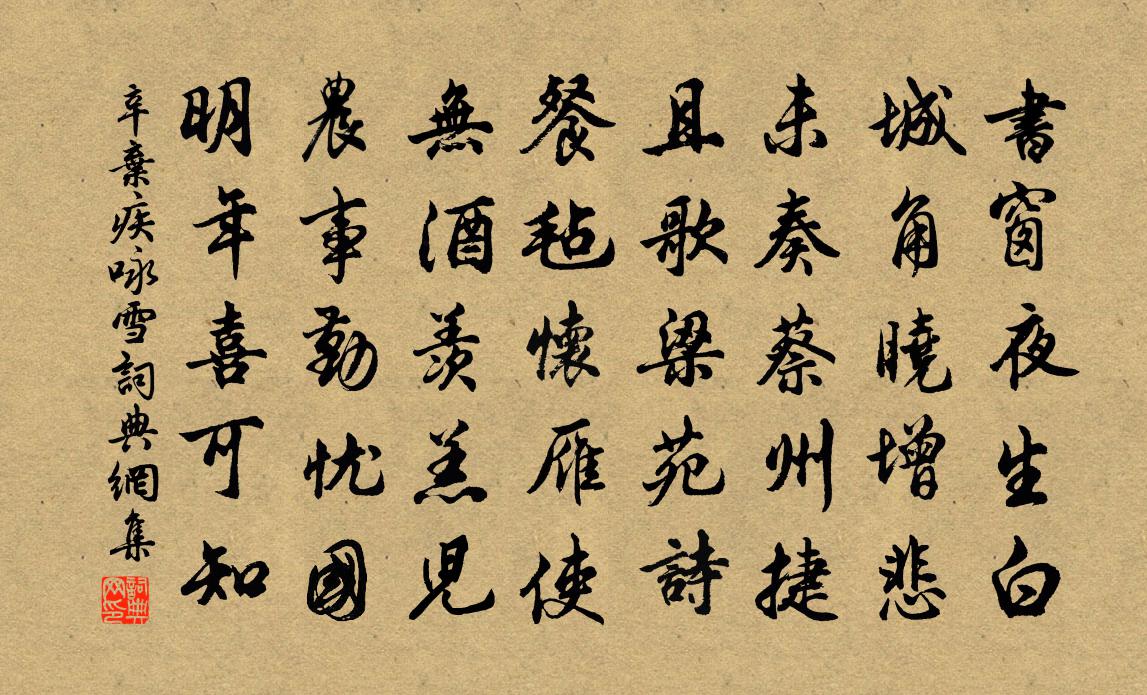 書窗夜生白
城角曉增悲
未奏蔡州捷
且歌梁苑詩
餐毡懷雁使
無酒羨羔兒
農事勤忧國
明年喜可知
辛棄疾咏雪詞典網集
詞典网印